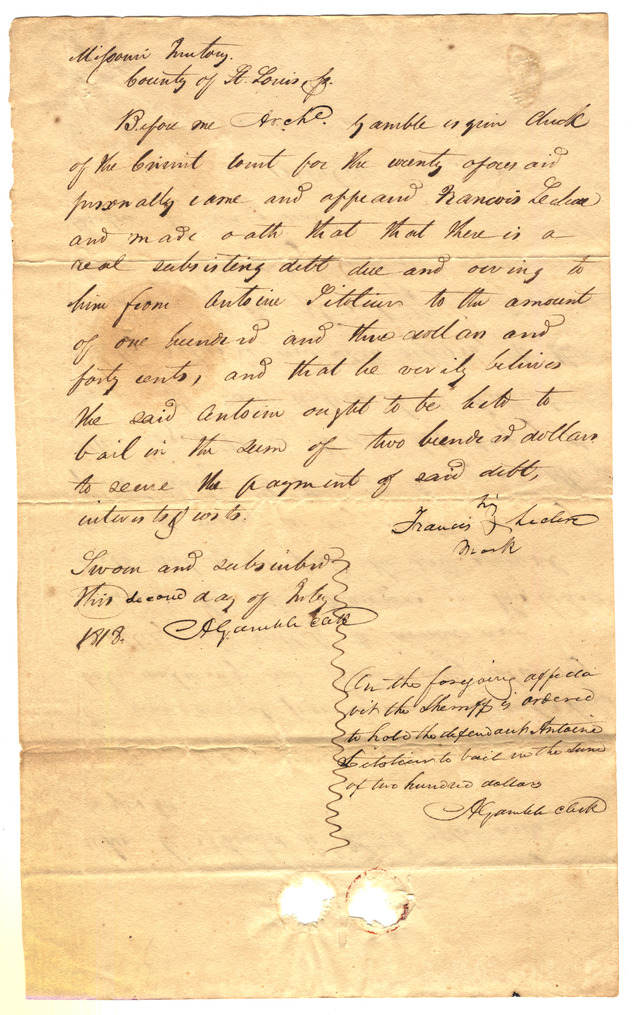 Missouri Territory.
County of St. Louis, ss.
Before me Archd. Gamble esquire Clerk
of the Circuit Court for the county aforesaid
personally came and appeared Francois Leclere
and made oath that that there is a
real subsisting debt due and owing to
him from Antoine
to the amount
of one hundred and three dollars and
forty cents, and that he verily believes
the said Antoine ought to be held to
bail in the sum of two hundred dollars
to secure the payment of said debt,
interest & costs.
Francis his Leclere
Mark
Sworn and subscribed
this second day of July
1818. AGamble clerk
On the foregoing affida
vit the Sherriff is ordered
to hold the defendant Antoine
to bail in the sum
of two hundred dollars
AGamble clerk